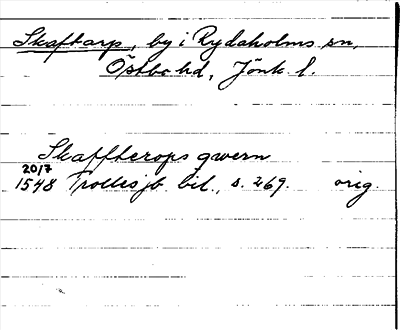 Skaftarp, by i Rydaholms sn,
Östbo hd, Jönk. l.
Skaffterops qwern
20/7
1548 Trolles jb. bil., s. 269. orig.